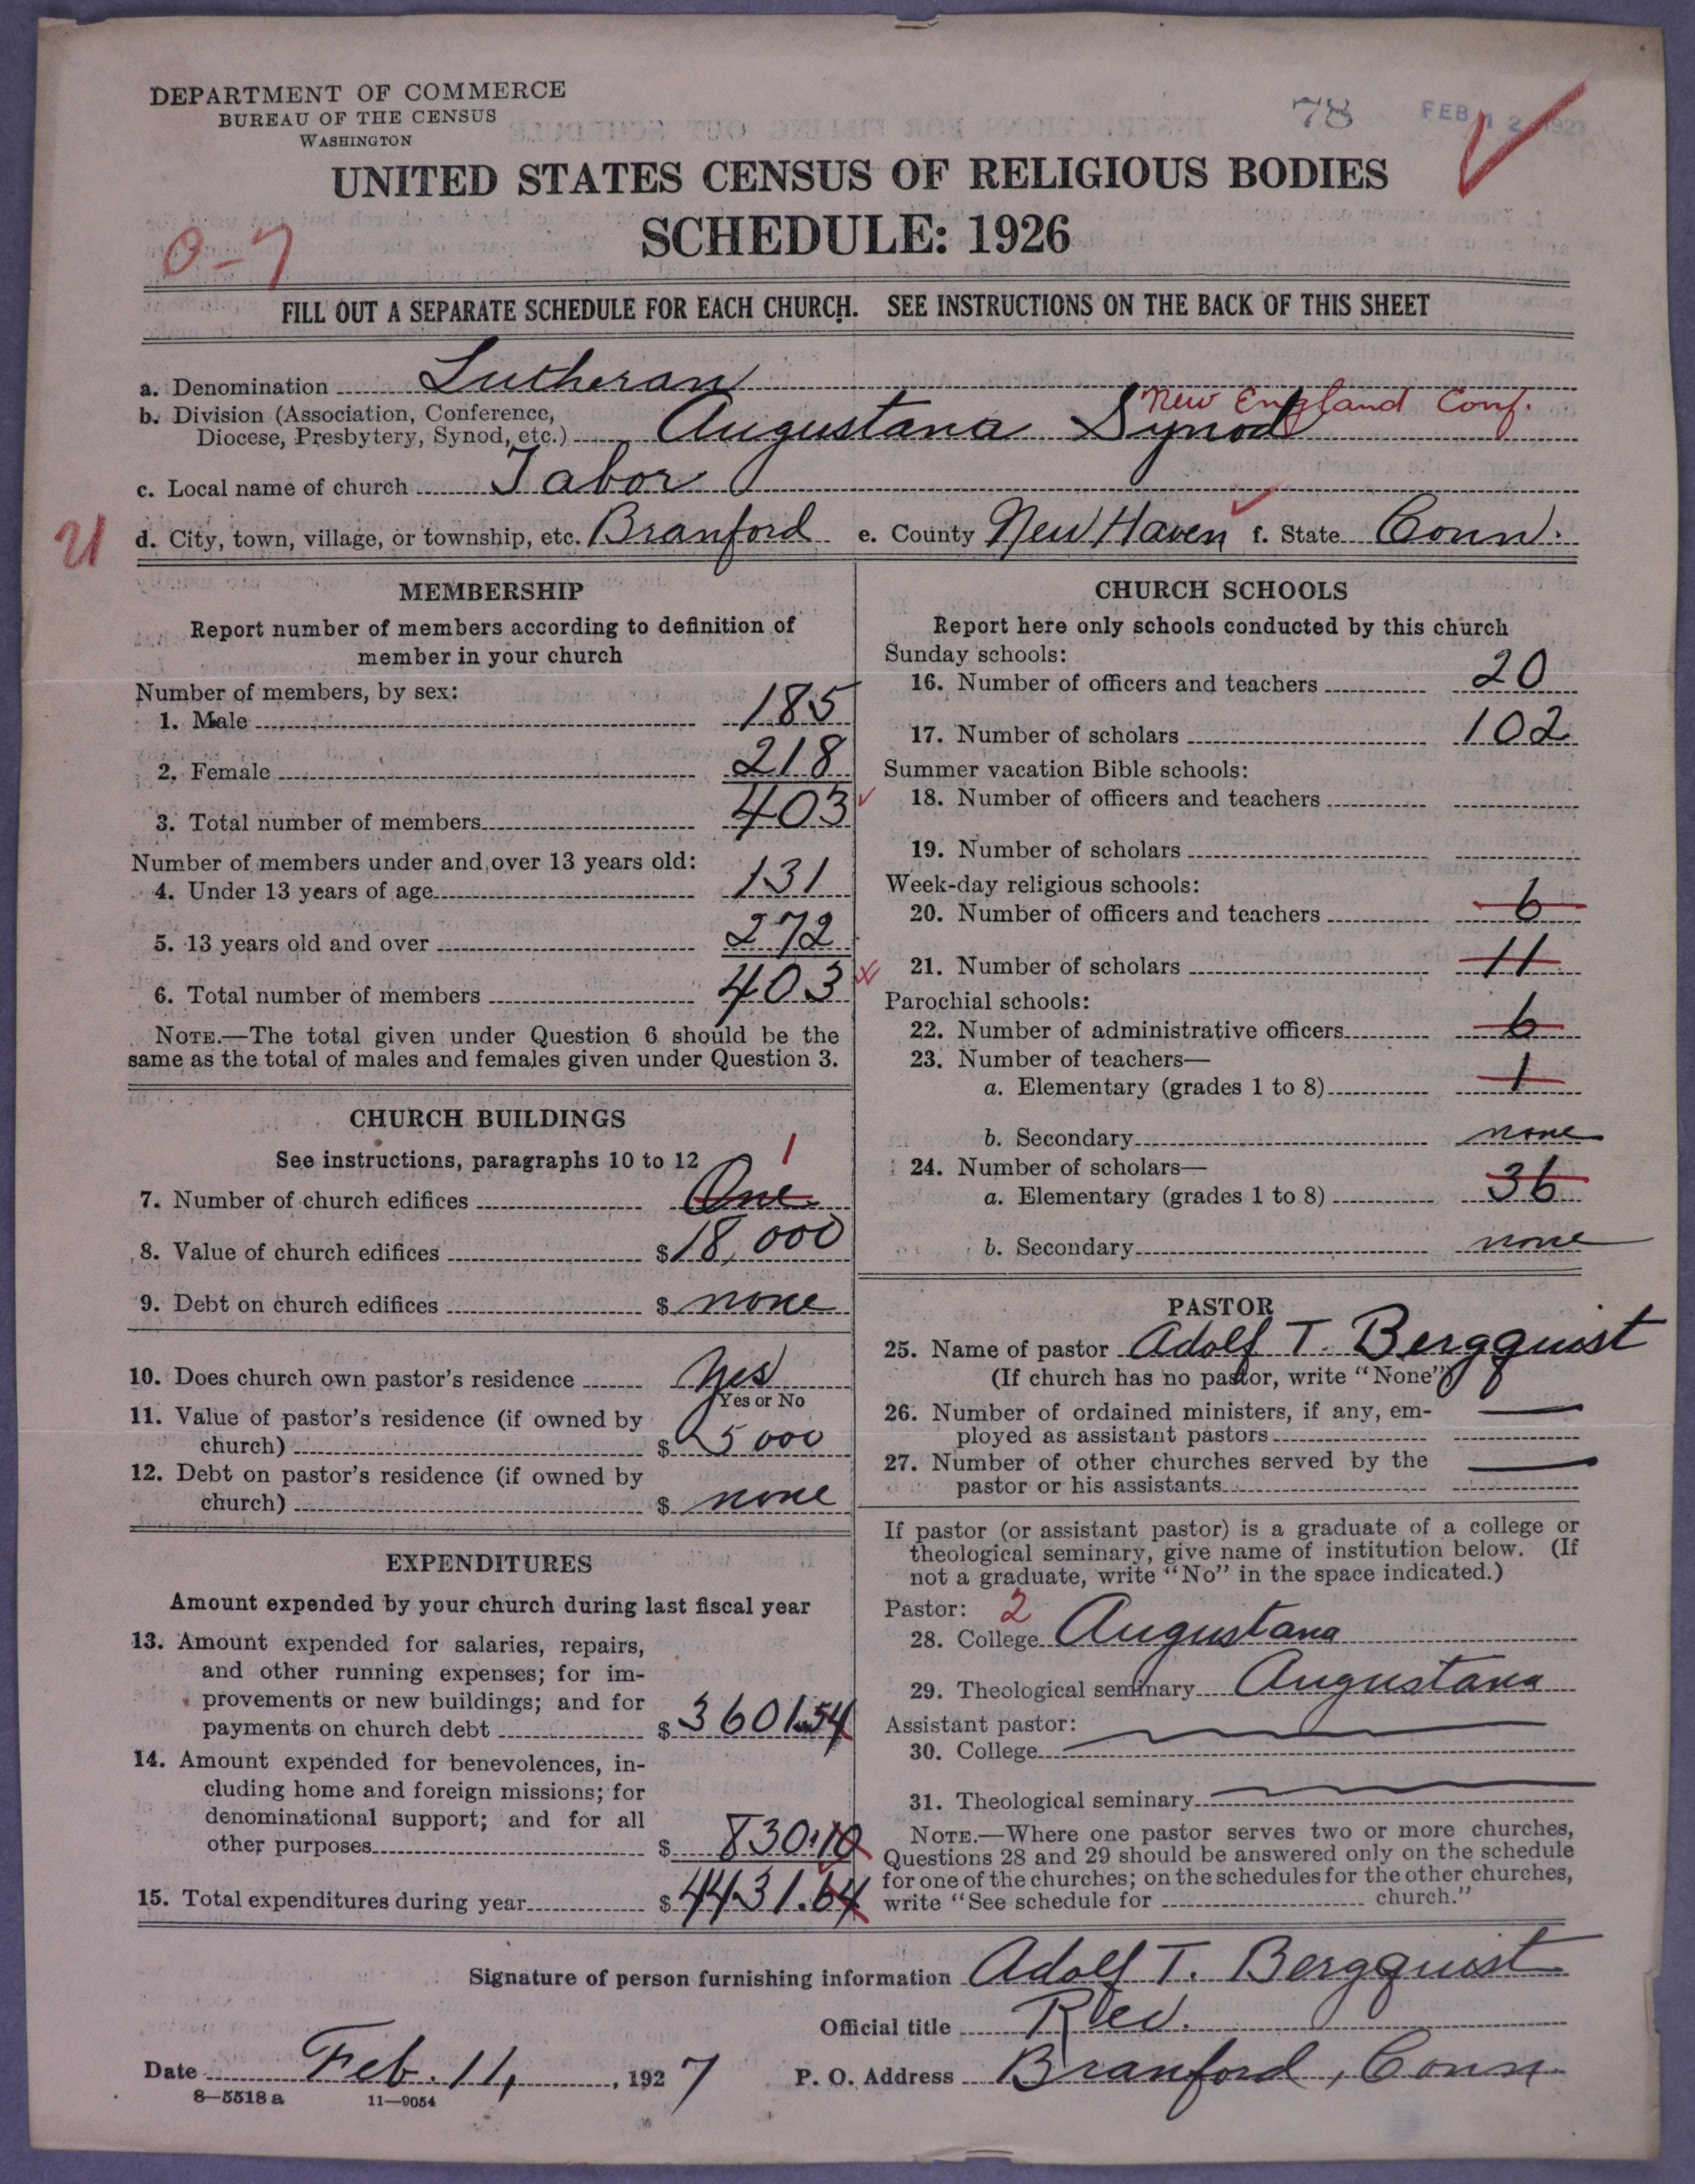 DEPARTMENT OF COMMERCE
BUREAU OF THE CENSUS
WASHINGTON
78
FEB 12 1927
UNITED STATES CENSUS OF RELIGIOUS BODIES
SCHEDULE: 1926
0-7
FILL OUT A SEPARATE SCHEDULE FOR EACH CHURCH. SEE INSTRUCTIONS ON THE BACK OF THIS SHEET
a. Denomination Lutheran
b. Division (Association, Conference,
Diocese, Presbytery, Synod, etc.) Augustana Synod New England Conf.
c. Local name of church Tabor
U d. City, town, village, or township, etc. Branford e. County New Haven f. State Conn.
MEMBERSHIP
Report number of members according to definition of
member in your church
Number of members, by sex:
1. Male 185
2. Female 218
3. Total number of members 403
Number of members under and over 13 years old:
4. Under 13 years of age 131
5. 13 years old and over 272
6. Total number of members 403
NOTE.—The total given under Question 6 should be the
same as the total of males and females given under Question 3.
CHURCH BUILDINGS
See instructions, paragraphs 10 to 12
1
7. Number of church edifices One
8. Value of church edifices $ 18,000
9. Debt on church edifices $ none
10. Does church own pastor's residence Yes
Yes or No
11. Value of pastor's residence (if owned by
church) $ 5000
12. Debt on pastor's residence (if owned by
church) $ none
EXPENDITURES
Amount expended by your church during last fiscal year
13. Amount expended for salaries, repairs,
and other running expenses; for im-
provements or new buildings; and for
payments on church debt $ 3601.54
14. Amount expended for benevolences, in-
cluding home and foreign missions; for
denominational support; and for all
other purposes $ 830.10
15. Total expenditures during year $ 4431.64
CHURCH SCHOOLS
Report here only schools conducted by this church
Sunday schools:
16. Number of officers and teachers 20
17. Number of scholars 102
Summer vacation Bible schools:
18. Number of officers and teachers
19. Number of scholars
Week-day religious schools:
20. Number of officers and teachers 6
21. Number of scholars 11
Parochial schools:
22. Number of administrative officers 6
23. Number of teachers—
a. Elementary (grades 1 to 8) 1
b. Secondary none
24. Number of scholars—
a. Elementary (grades 1 to 8) 36
b. Secondary none
PASTOR
25. Name of pastor Adolf T. Bergquist
(If church has no pastor, write "None")
26. Number of ordained ministers, if any, em-
ployed as assistant pastors
27. Number of other churches served by the
pastor or his assistants
If pastor (or assistant pastor) is a graduate of a college or
theological seminary, give name of institution below. (If
not a graduate, write "No" in the space indicated.)
Pastor: 2
28. College Augustana
29. Theological seminary Augustana
Assistant pastor:
30. College
31. Theological seminary
NOTE.—Where one pastor serves two or more churches,
Questions 28 and 29 should be answered only on the schedule
for one of the churches; on the schedules for the other churches,
write "See schedule for church."
Signature of person furnishing information Adolf T. Bergquist
Official title Rev.
Date Feb. 11, 1927 P. O. Address Branford, Conn
8—5518 a 11—9054